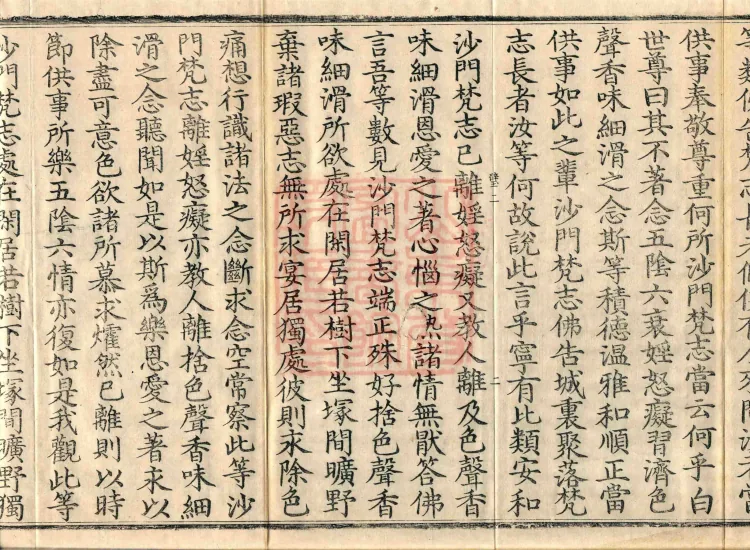 供事奉敬尊重何所沙門梵志當云何乎白
世尊曰其不著念五陰六衰婬怒癡習濟色
聲香味細滑之念斯等積德溫雅和順正當
供事如此之輩沙門梵志佛告城裏聚落梵
志長者汝等何故說此言乎寧有此類安和
沙門梵志已離婬怒癡又教人離及色聲香
味細滑恩愛之著心惱之热諸情無猒答佛
言吾等數見沙門梵志端正殊好捨色聲香
味細滑所欲處在閑居若樹下坐塚間曠野
棄諸瑕惡志無所求宴居獨處彼則永除色
痛想行識諸法之念斷求念空常察此等沙
門梵志離婬怒癡亦教人離捨色聲香味細
滑之念聽聞如是以斯爲樂恩愛之著永以
除盡可意色欲諸所慕求爟然已離則以時
節供事所樂五陰六情亦復如是我觀此等
沙門梵志處在閑居若樹下坐塚間曠野獨